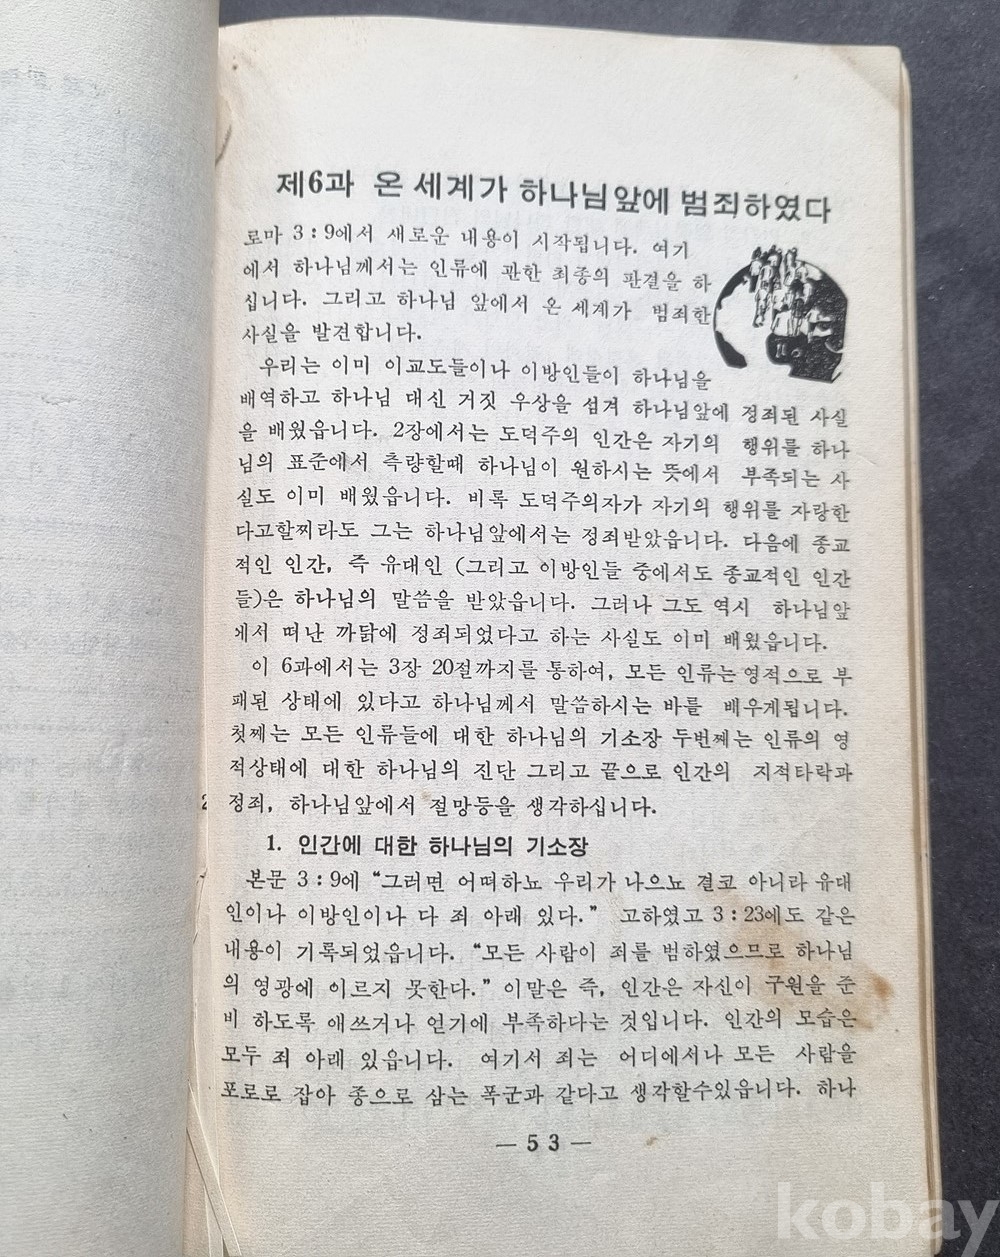 제6과 온 세계가 하나님앞에 범죄하였다
로마 3:9에서 새로운 내용이 시작됩니다. 여기
에서 하나님께서는 인류에 관한 최종의 판결을 하
십니다. 그리고 하나님 앞에서 온 세계가 범죄한
사실을 발견합니다.
우리는 이미 이교도들이나 이방인들이 하나님을
배역하고 하나님 대신 거짓 우상을 섬겨 하나님앞에 정죄된 사실
을 배웠읍니다. 2장에서는 도덕주의 인간은 자기의 행위를 하나
님의 표준에서 측량할때 하나님이 원하시는 뜻에서 부족되는 사
실도 이미 배웠읍니다. 비록 도덕주의자가 자기의 행위를 자랑한
다고할찌라도 그는 하나님앞에서는 정죄받았읍니다. 다음에 종교
적인 인간, 즉 유대인 (그리고 이방인들 중에서도 종교적인 인간
들)은 하나님의 말씀을 받았읍니다. 그러나 그도 역시 하나님앞
에서 떠난 까닭에 정죄되었다고 하는 사실도 이미 배웠읍니다.
이 6과에서는 3장 20절까지를 통하여, 모든 인류는 영적으로 부
패된 상태에 있다고 하나님께서 말씀하시는 바를 배우게됩니다.
첫째는 모든 인류들에 대한 하나님의 기소장 두번째는 인류의 영
적상태에 대한 하나님의 진단 그리고 끝으로 인간의 지적타락과
정죄, 하나님앞에서 절망등을 생각하십니다.
1. 인간에 대한 하나님의 기소장
본문 3:9에 “그러면 어떠하뇨 우리가 나으뇨 결코 아니라 유대
인이나 이방인이나 다 죄 아래 있다.” 고하였고 3:23에도 같은
내용이 기록되었읍니다. “모든 사람이 죄를 범하였으므로 하나님
의 영광에 이르지 못한다.” 이말은 즉, 인간은 자신이 구원을 준
비 하도록 애쓰거나 얻기에 부족하다는 것입니다. 인간의 모습은
모두 죄 아래 있읍니다. 여기서 죄는 어디에서나 모든 사람을
포로로 잡아 종으로 삼는 폭군과 같다고 생각할수있읍니다. 하나
— 53 —
kobay